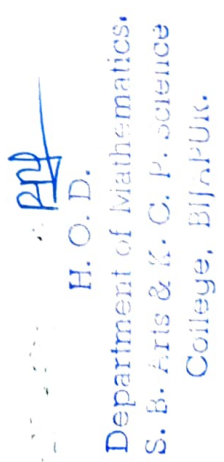 H. O. D.
Department of Mathematics.
S. B. Arts & K. C. P. Science
College, BIJAPUR.